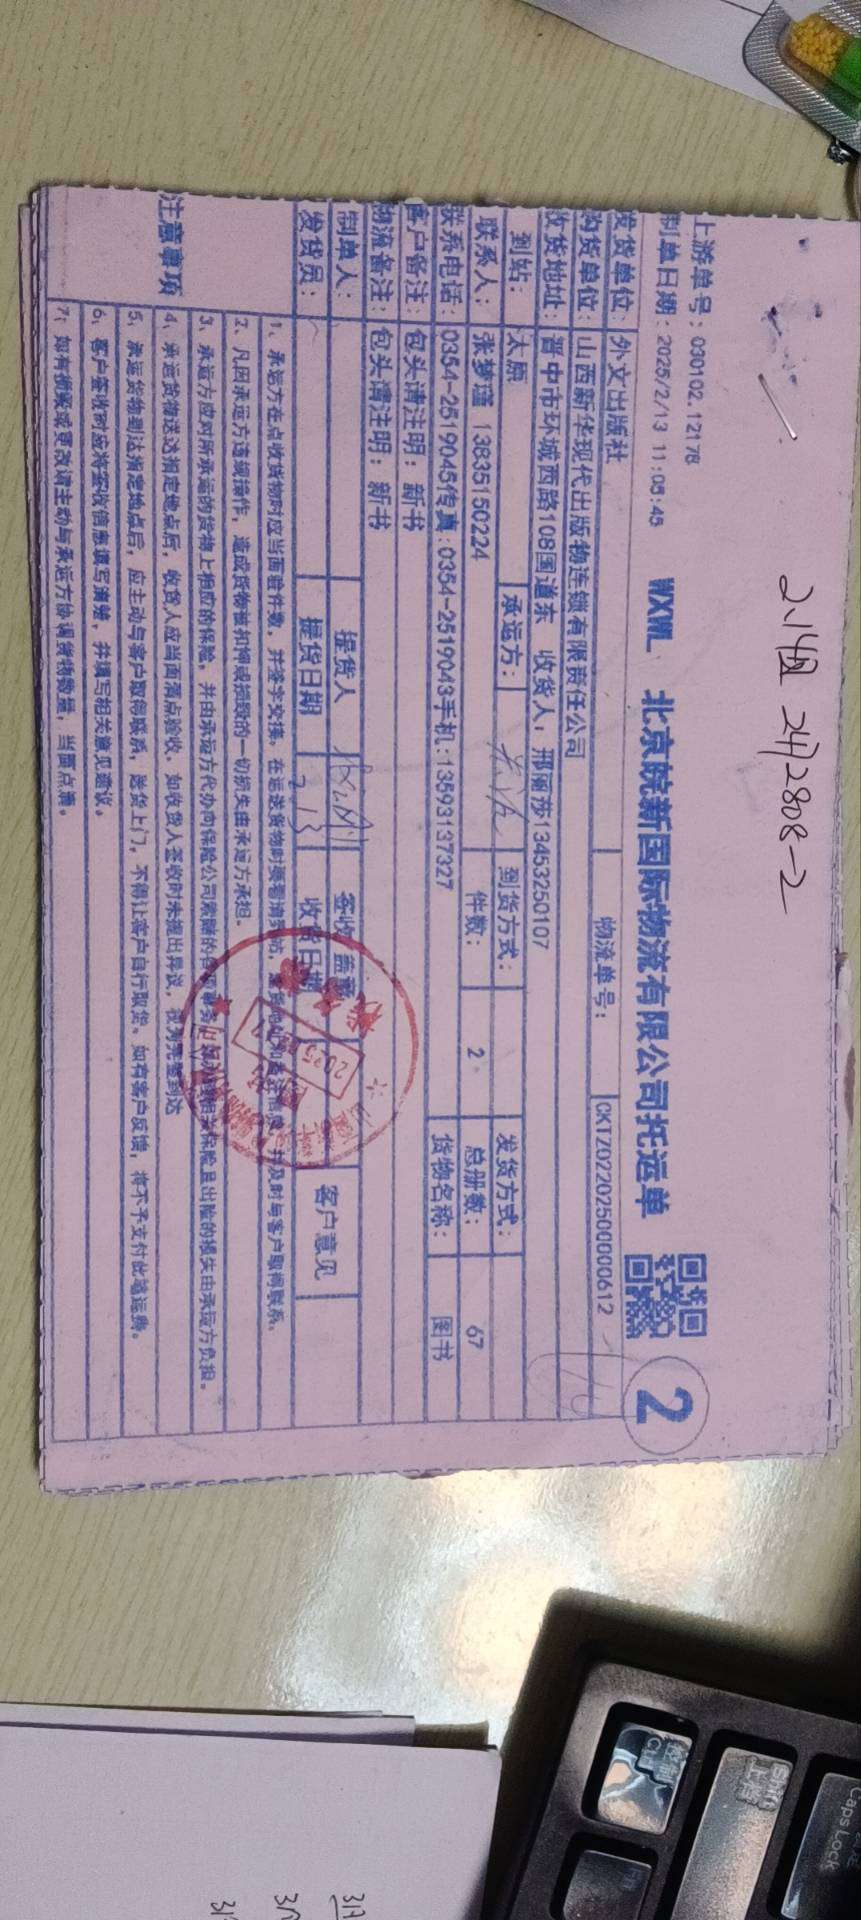 2.14 2412808-2
上游单号：030102.12178
制单日期：2025/2/13 11:05:45
WXWL 北京皖新国际物流有限公司托运单
2
发货单位：外文出版社 物流单号：CKTZ02202500000612
购货单位：山西新华现代出版物连锁有限责任公司
收货地址：晋中市环城西路108国道东 收货人，邢丽莎13453250107
到站：太原 承运方： 到货方式： 发货方式：
联系人：张梦瑶 13835150224 件数：2 总册数：67
联系电话：0354-2519045传真:0354-2519043手机:13593137327 货物名称：图书
客户备注：包头请注明：新书
物流备注：包头请注明：新书
制单人： 提货人 签收盖章 客户意见
发货员： 提货日期 2.13 收货日期
注意事项
1、承运方在点收货物时应当面验件数，并签字交接。在运送货物时要看清到站，发货地址和备注信息，并及时与客户取得联系。
2、凡因承运方违规操作，造成货物被扣押或损毁的一切损失由承运方承担。
3、承运方应对所承运的货物上相应的保险，并由承运方代办向保险公司索赔的各项事务，如未办理相关保险且出险的损失由承运方负担。
4、承运货物送达指定地点后，收货人应当面清点验收，如收货人签收时未提出异议，视为完整到达
5、承运货物到达指定地点后，应主动与客户取得联系，送货上门，不得让客户自行取货。如有客户反馈，将不予支付此笔运费。
6、客户签收时应将签收信息填写清楚，并填写相关意见建议。
7、如有损毁或更改请主动与承运方协调货物数量，当面点清。
控制
Ctrl
Shift
上档
Caps Lock